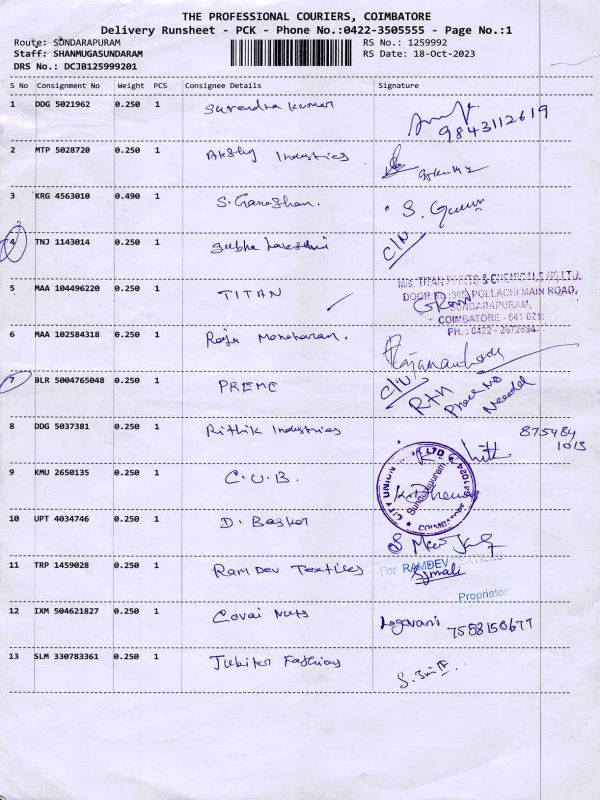 THE PROFESSIONAL COURIERS, COIMBATORE
Delivery Runsheet - PCK - Phone No.:0422-3505555 - Page No.:1
Route: SUNDARAPURAM RS No.: 1259992
Staff: SHANMUGASUNDARAM RS Date: 18-Oct-2023
DRS No.: DCJB125999201
S No Consignment No Weight PCS Consignee Details Signature
1 DDG 5021962 0.250 1 Surendra Kumar
9843112619
2 MTP 5028720 0.250 1 Akshy Industries
3 KRG 4563010 0.490 1 S. Ganeshan.
4 TNJ 1143014 0.250 1 Subha Lakshmi C/N
5 MAA 104496220 0.250 1 TITAN
M/S. TITAN PAINTS & CHEMICALS (P) LTD.
DOOR NO: POLLACHI MAIN ROAD,
SUNDARAPURAM,
COIMBATORE - 641 021.
PH.: 0422 - 2672894
6 MAA 102584318 0.250 1 Raja Manoharan.
7 BLR 5004765048 0.250 1 PREME C/N
RTN
Phone No
Needed
8 DDG 5037381 0.250 1 Rithik Industries 875484
1013
9 KMU 2650135 0.250 1 C.U.B.
CITY UNION BANK LTD
Sundarapuram
COIMBATORE
10 UPT 4034746 0.250 1 D. Basker
11 TRP 1459028 0.250 1 Ram Dev Textiles
For RAMDEV TEXTILES
Proprietor
12 IXM 504621827 0.250 1 Covai Nuts
7558150677
13 SLM 330783361 0.250 1 Jubiter Fashions